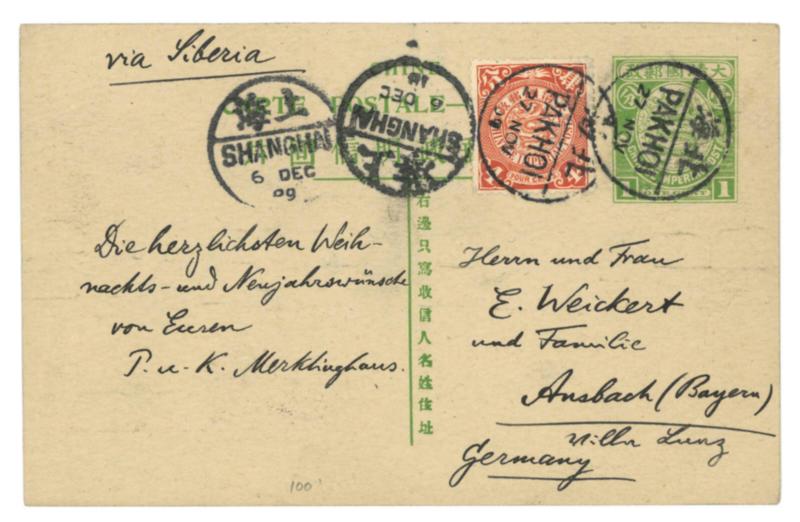 via Siberia
CARTE POSTALE
上海
SHANGHAI
6 DEC
09
上海
SHANGHAI
6 DEC
北海
PAKHOI
27 NOV
09
FOUR CEN
4
北海
PAKHOI
27 NOV
大清國郵政
IMPERIAL POST
1
右邊只寫收信人名姓住址
Die herzlichsten Weih-
nachts- und Neujahrswünsche
von Euren
P. u. K. Merklinghaus.
Herrn und Frau
E. Weickert
und Familie
Ansbach (Bayern)
Villa Lunz
Germany
100